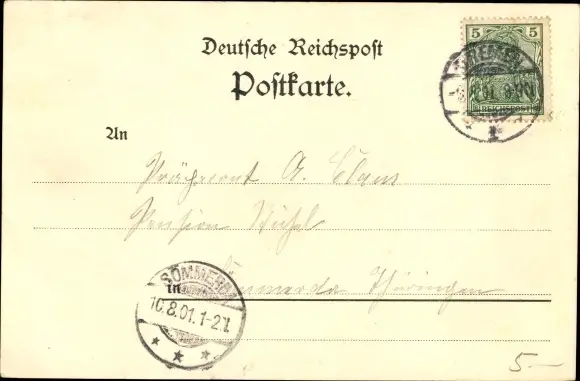 Deutsche Reichspost
Postkarte.
5 5
REICHSPOST
BREMEN
8.01. 9-10
1
An
A. Claus
Pension
in Sömmerda Thüringen
SÖMMERDA
10.8.01. 1-2 N
5-